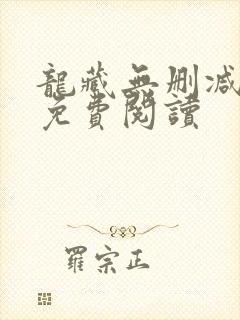 龍藏無刪減
免費閱讀
羅宗正